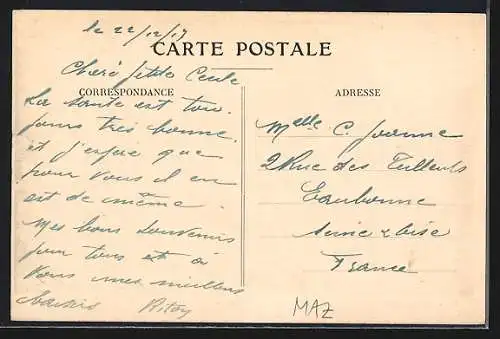 le 22/12/17
CARTE POSTALE
Chère petite Cecile
CORRESPONDANCE
ADRESSE
La santé est tou-
jours très bonne
et j'espère que
pour vous il en
est de même
Mes bons souvenirs
pour tous et à
vous mes meilleurs
baisers
Melle C. Jeanne
2 Rue des Tilleuls
Eaubonne
Seine & Oise
France
MAZ